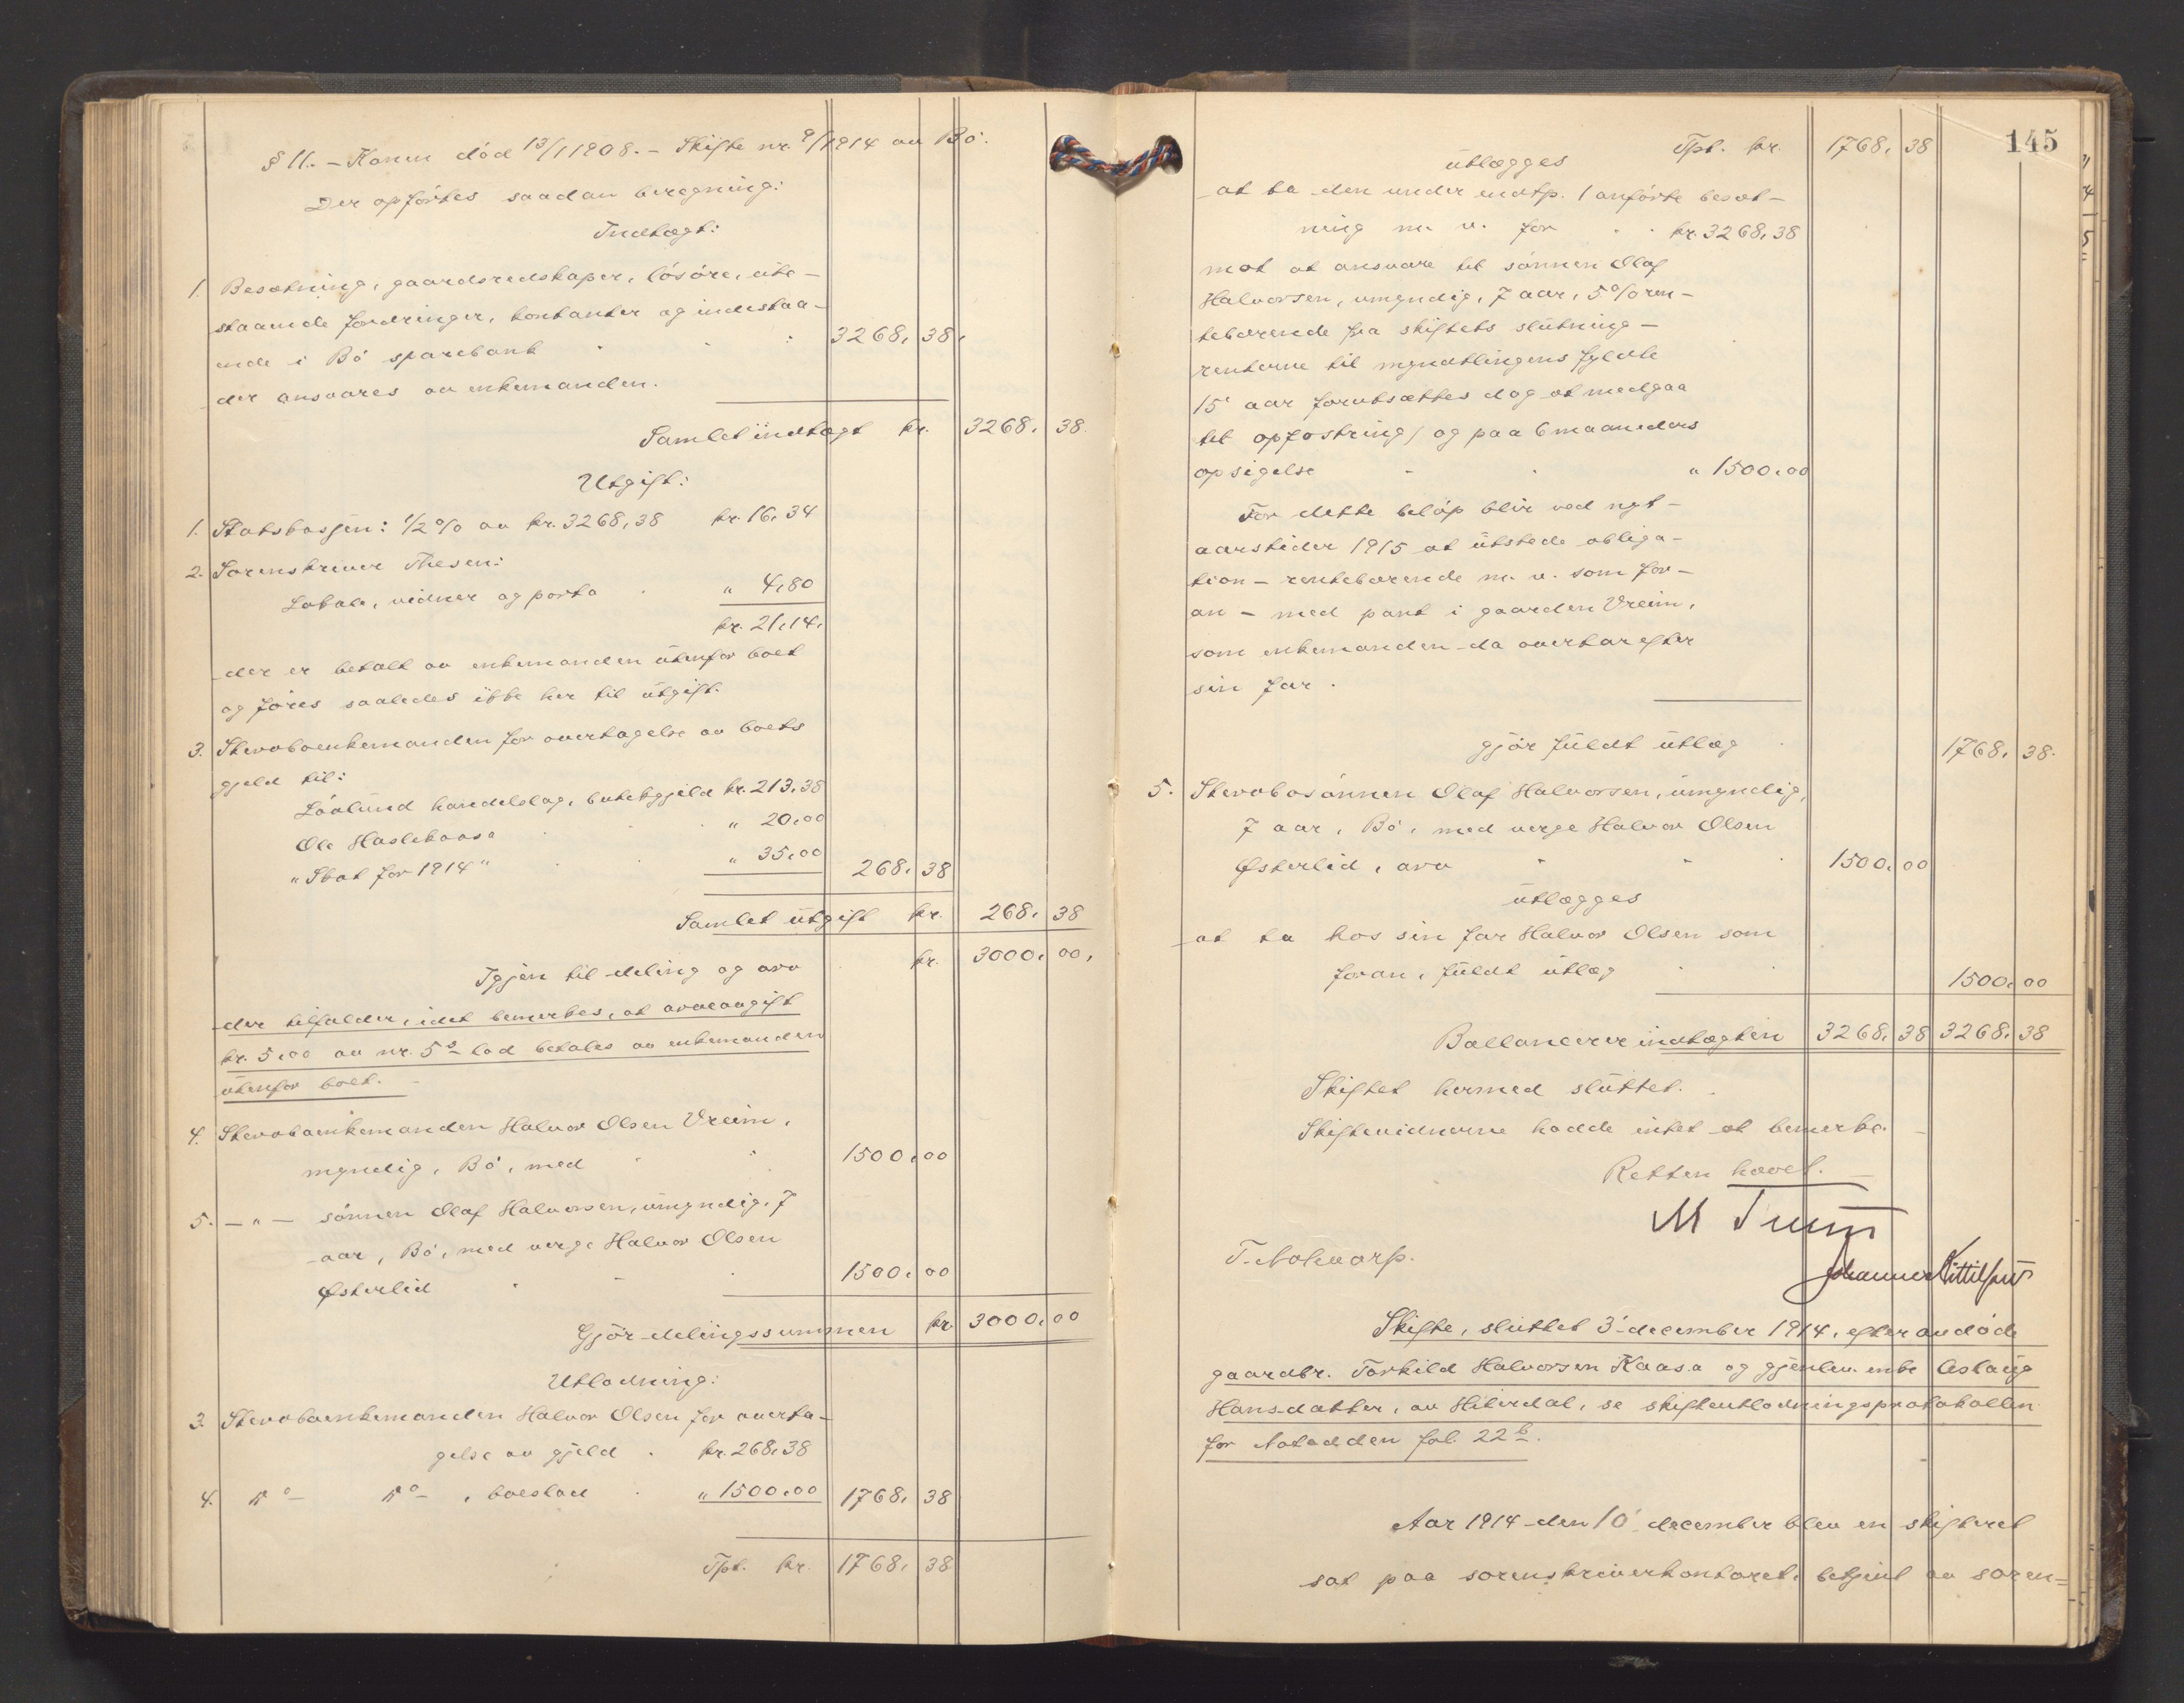 § 11. – Konen död 13/1 1908. – Skifte nr. 9/1914 av Bö.
Der opförtes saadan beregning:
Indtægt:
1. Besætning, gaardsredskaper, lösöre, ute-
staaende fordringer, kontanter og indestaa-
ende i Bö sparebank 3268, 38,
der ansvares av enkemanden.
Samlet indtægt kr. 3268, 38.
Utgift:
1. Statskassen: 1/2 % av kr. 3268,38 kr. 16,34
2. Sorenskriver Thesen:
Lokale, vidner og porto " 4,80
kr. 21,14,
der er betalt av enkemanden utenfor boet
og föres saaledes ikke her til utgift.
3. Stervboenkemanden for overtagelse av boets
gjeld til:
handelslag, butikgjeld kr. 213,38
Ole Haslekaasa " 20,00
"Skat for 1914" " 35,00 268, 38
Samlet utgift kr. 268, 38
Igjen til deling og arv kr. 3000, 00,
der tilfalder, idet bemerkes, at arveavgift
kr. 5,00 av nr. 5s lod betales av enkemanden
utenfor boet. –
4. Stervboenkemanden Halvor Olsen Vreim,
myndig, Bö, med 1500,00
5. – " – sönnen Olaf Halvorsen, umyndig, 7
aar, Bö, med verge Halvor Olsen
Østerlid 1500,00
Gjör delingssummen kr. 3000,00
Utlodning:
3. Stervboenkemanden Halvor Olsen for overta-
gelse av gjeld kr. 268,38
4. do – do – , boeslod " 1500,00 1768, 38
Tpt. kr. 1768, 38
145
Tpt. kr. 1768, 38
utlægges
at ta den under indtp. 1 anförte besæt-
ning m. v. for kr. 3268,38
mot at ansvare til sönnen Olaf
Halvorsen, umyndig, 7 aar, 5 % ren-
tebærende fra skiftets slutning –
renterne til myndtlingens fyldte
15 aar forutsættes dog at medgaa
til opfostring, og paa 6 maaneders
opsigelse " 1500,00
For dette belöp blir ved nyt-
aarstider 1915 at utstede obliga-
tion – rentebærende m. v. som for-
an – med pant i gaarden Vreim,
som enkemanden da overtar efter
sin far.
gjör fuldt utlæg 1768, 38.
5. Stervbosönnen Olaf Halvorsen, umyndig,
7 aar, Bö, med verge Halvor Olsen
Østerlid, arv 1500,00
utlægges
at ta hos sin far Halvor Olsen som
foran, fuldt utlæg 1500,00
Ballancerer indtægten 3268, 38 3268, 38
Skiftet hermed sluttet.
Skiftevidnerne hadde intet at bemerke. –
Retten hævet.
M
T. Notevarp.
Johannes Kittilsen
Skifte, sluttet 3 december 1914, efter avdöde
gaardbr. Torkild Halvorsen Kaasa og gjenlev. enke Aslaug
Hansdatter, av Hiterdal, se skifteutlodningsprotokollen
for Notodden fol. 22b.
Aar 1914 den 10 december blev en skifteret
sat paa sorenskriverkontoret, betjent av soren=